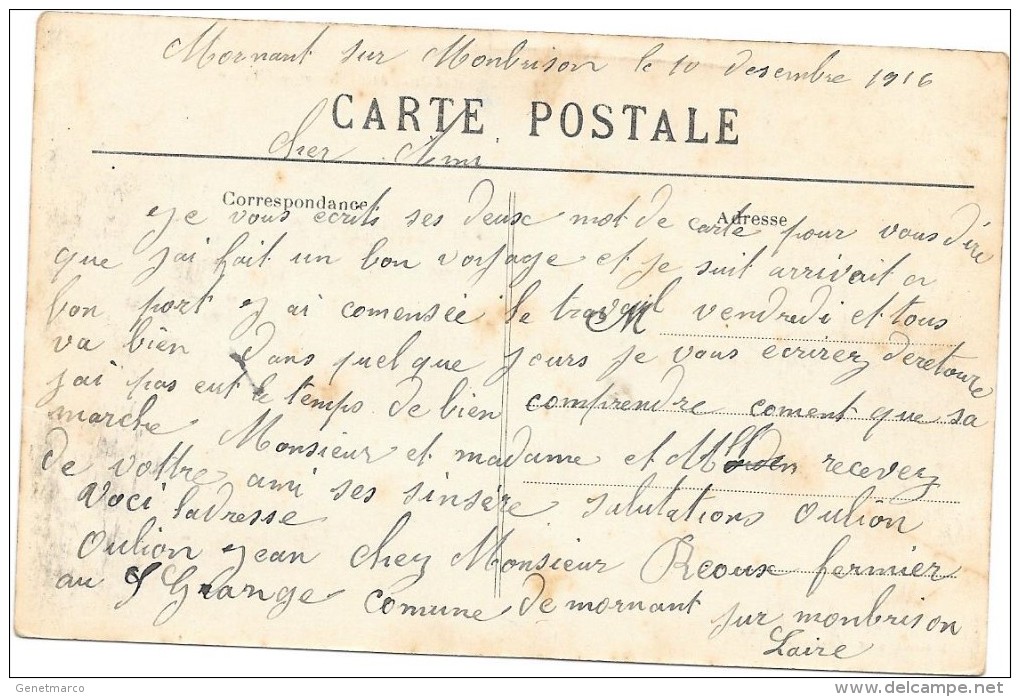 Mornant sur Monbrison le 10 desembre 1916
CARTE POSTALE
Cher Ami
Correspondance
Adresse
je vous ecrits ses deux mot de carte pour vous dire
que j'ai fait un bon voyage et je suit arrivait a
bon port j ai comensée le travail vendredi et tous
M
va bien Dans quelque jours je vous ecrirez deretour
j'ai pas eut le temps de bien comprendre coment que sa
marche Monsieur et madame et recevez
de vottre ami ses sinsére salutations oulion
Voci ladresse
Oulion jean chez Monsieur Reoux fermier
au Grange comune de mornant sur monbrison
Loire
Genetmarco
delcampe.net